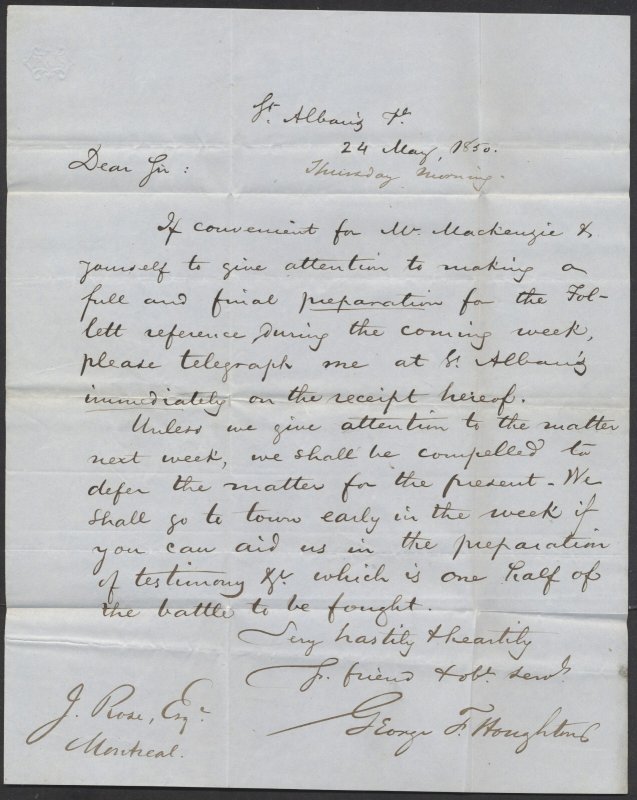 St. Albans Vt.
24 May, 1850.
Thursday morning.
Dear Sir:
If convenient for Mr. Mackenzie &
yourself to give attention to making a
full and final preparation for the Fol-
lett reference during the coming week,
please telegraph me at St. Albans
immediately on the receipt hereof.
Unless we give attention to the matter
next week, we shall be compelled to
defer the matter for the present - We
shall go to town early in the week if
you can aid us in the preparation
of testimony &c. which is one half of
the battle to be fought.
Very hastily & heartily
Yr. friend & obt. servt.
George F. Houghton
J. Rose, Esqr.
Montreal.